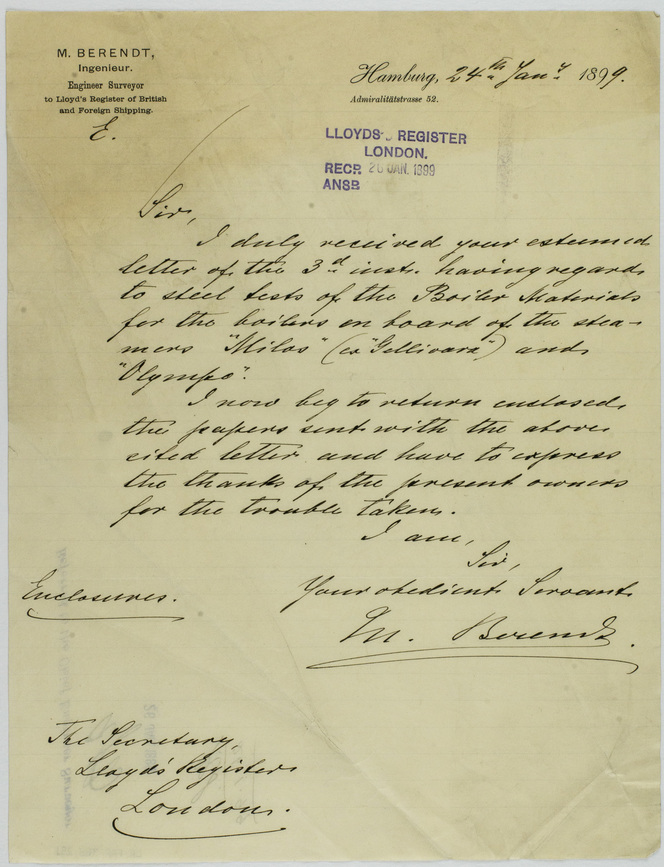 M. BERENDT,
Ingenieur.
Engineer Surveyor
to Lloyd's Register of British
and Foreign Shipping.
E.
Hamburg, 24th Jany 1899.
Admiralitätstrasse 52.
LLOYDS REGISTER
LONDON.
RECD 26 JAN. 1899
ANSD
Sir,
I duly received your esteemed
letter of the 3d inst. having regard
to steel tests of the Boiler Materials
for the boilers on board of the stea-
mers "Milos" (ex "Gellivara") and
"Olympo".
I now beg to return enclosed
the papers sent with the above
cited letter and have to express
the thanks of the present owners
for the trouble taken.
I am,
Sir,
Your obedient Servant
M. Berendt.
Enclosures.
The Secretary,
Lloyd's Register
London.